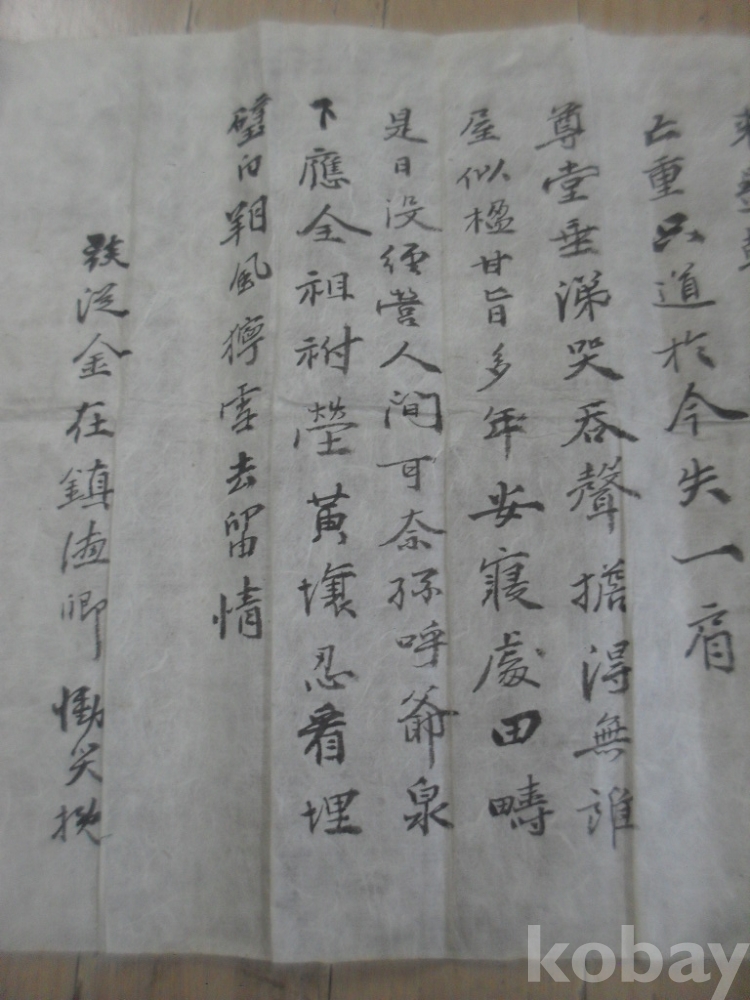 亡重只道於今失一肩
尊堂垂涕哭吞聲擔得無誰
屋似楹甘旨多年安寢處田疇
是日没經營人間可奈孫呼爺泉
下應全祖祔塋黃壤忍看埋
璧白朝風獰雪去留情
族從金在鎮 慟哭挽
kobay